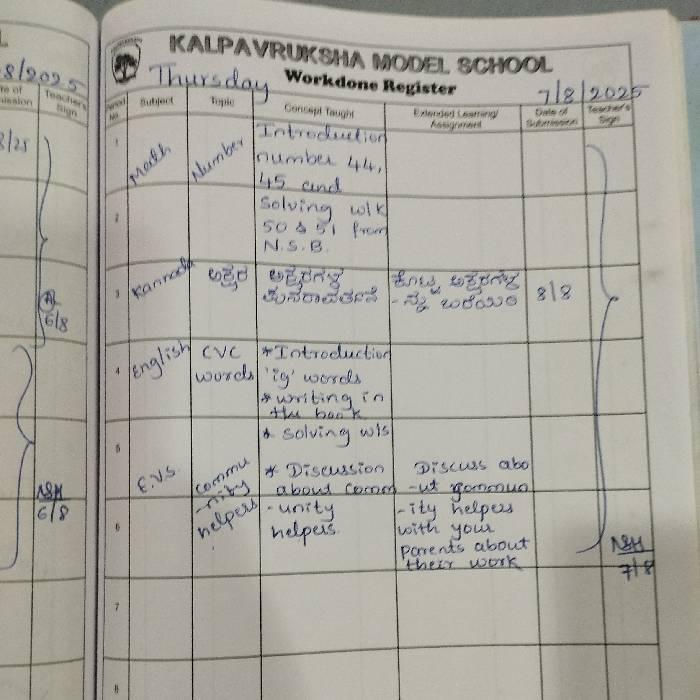 8/2025
Teacher's
Sign
8/25
6/8
NSH
6/8
KALPAVRUKSHA MODEL SCHOOL
Thursday
Workdone Register
7/8/2025
Period No.
Subject
Topic
Concept Taught
Extended Learning/
Assignment
Date of
Submission
Teacher's
Sign
1
Math
Number
Introduction
number 44,
45 and
2
Solving w/k
50 & 51 from
N.S.B.
3
Kannada
ಅಕ್ಷರ
ಅಕ್ಷರಗಳ
ಪುನರಾವರ್ತನೆ
ಕೊಟ್ಟ ಅಕ್ಷರಗಳ
-ನ್ನು ಬರೆಯಿರಿ
8/8
4
English
CVC
words
*Introduction
'ig' words
*writing in
the book
5
* Solving w/s
E.V.S.
commu
-nity
helpers
* Discussion
about comm
-unity
helpers.
Discuss abo
-ut commun
-ity helpers
with your
parents about
their work
6
NSH
7/8
7
8